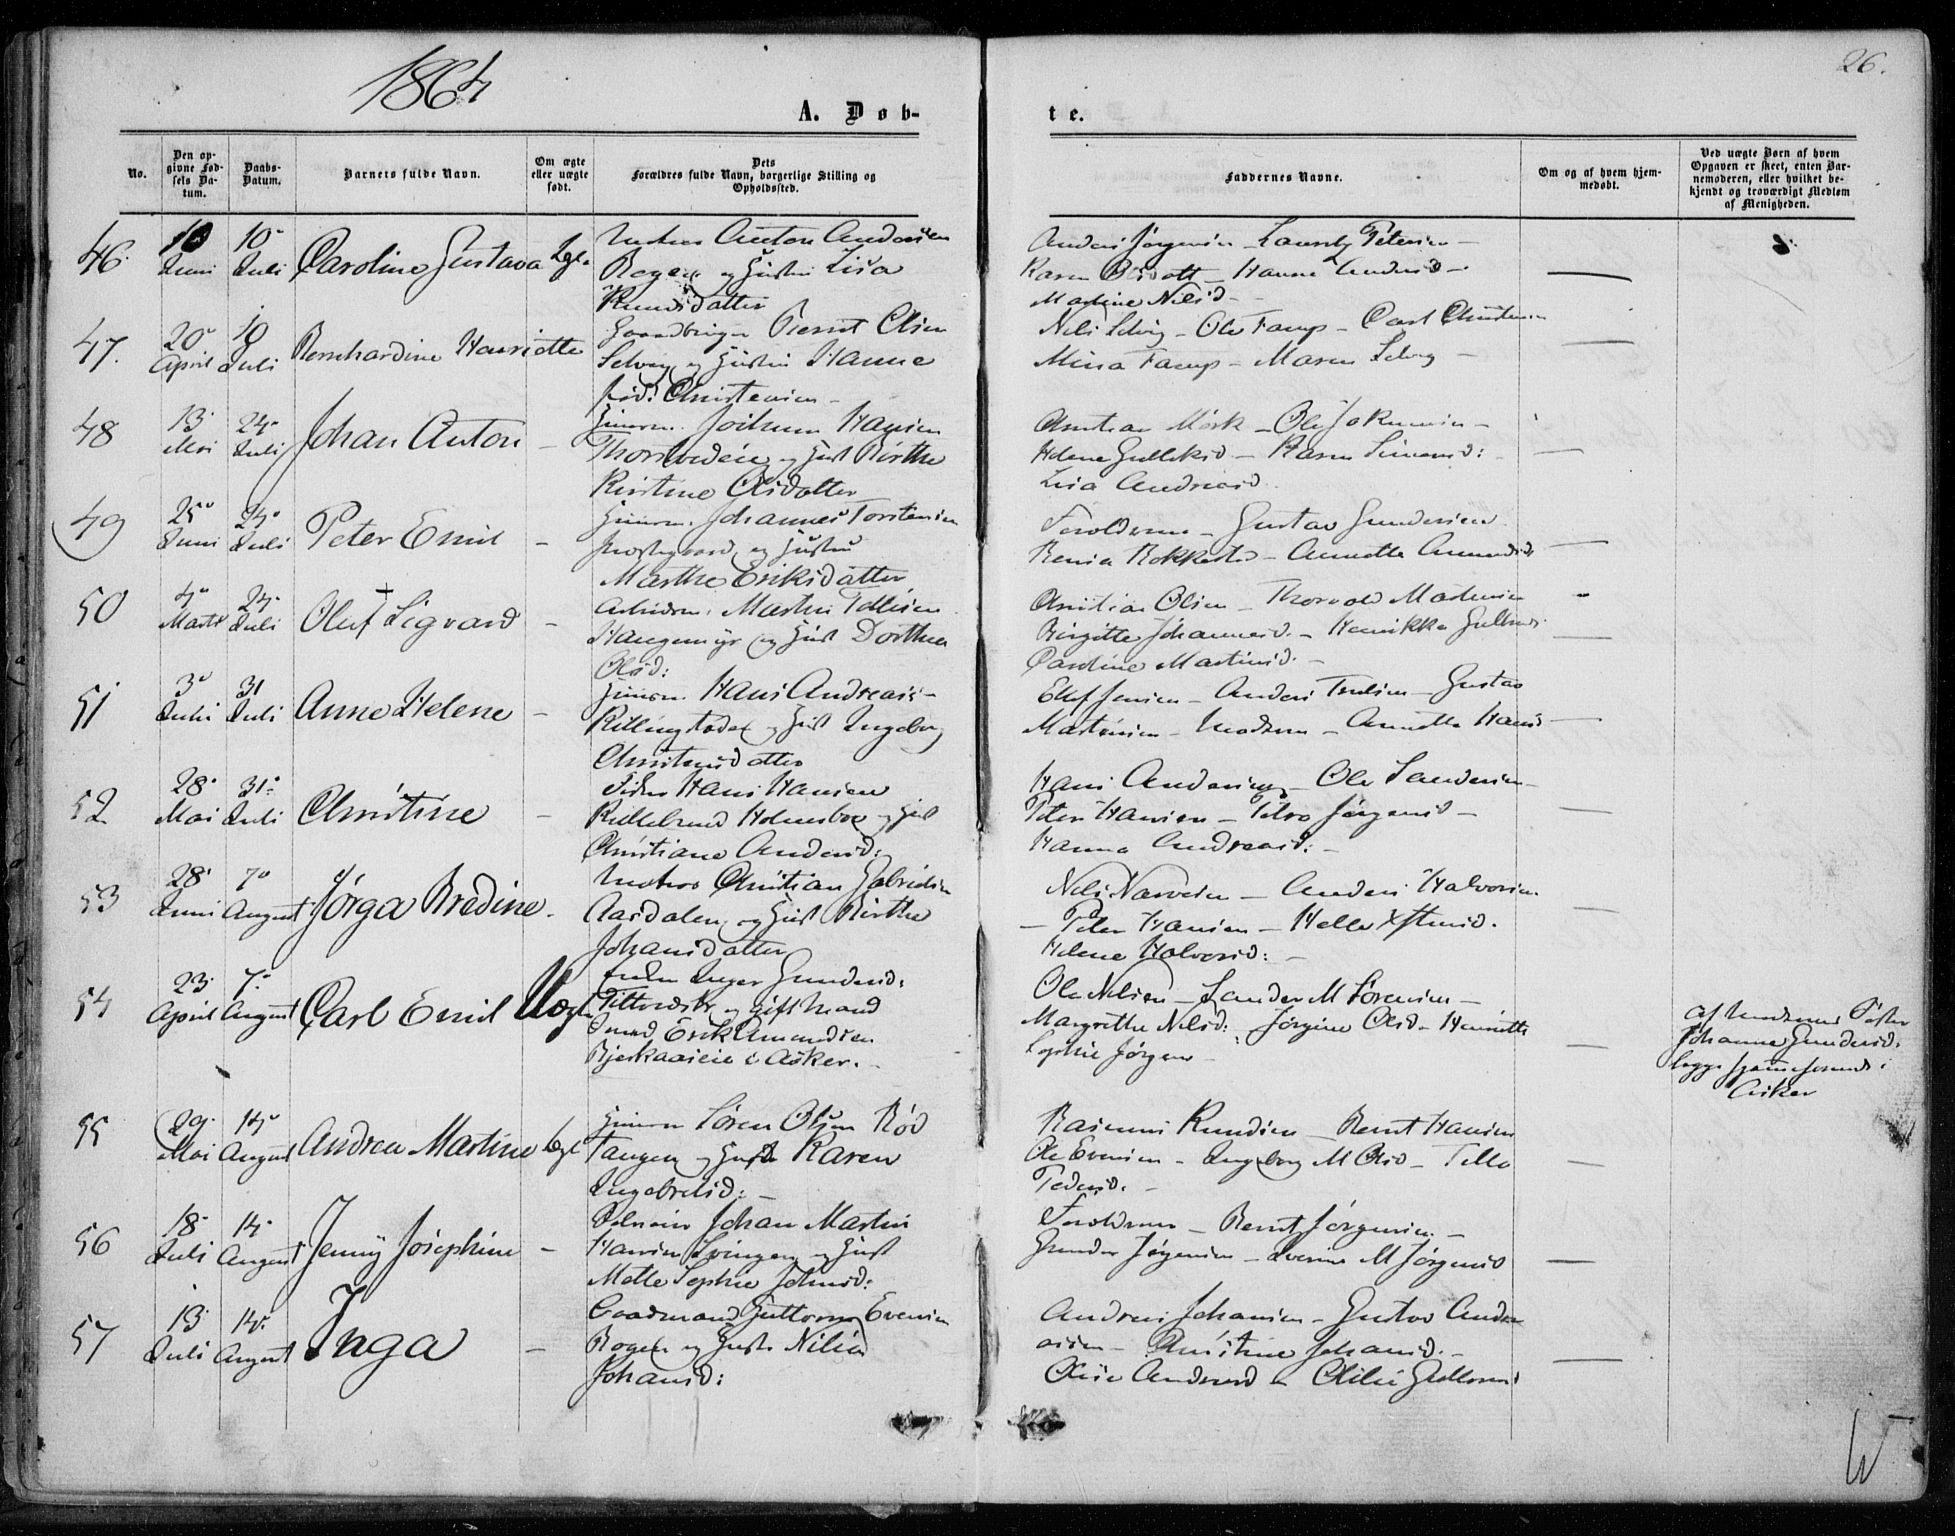 1864
26.
A. Døb-
te.
No.
Den op-
givne Fød-
sels Da-
tum.
Daabs-
Datum.
Barnets fulde Navn.
Om ægte
eller uægte
født.
Dets
Forældres fulde Navn, borgerlige Stilling og
Opholdssted.
Faddernes Navne.
Om og af hvem hjem-
medøbt.
Ved uægte Børn af hvem
Opgaven er skeet, enten Bar-
nemoderen, eller hvilket be-
kjendt og troværdigt Medlem
af Menigheden.
46.
10
Juni
10
Juli
Caroline Gustava
Anton Andersen
og Hustru Lisa
Knudsdatter
Anders Jørgensen - Petersen -
Karen - Hanne Andersd -
Martine Nilsd -
47.
20
April
10
Juli
Bernhardine Henriette
Bernt Olsen
Selvig og Hustru Hanne
fød. Christensen -
Nils Selvig - Ole - Carl Christensen
- Maren Selvig -
48
13
Mai
24
Juli
Johan Anton -
Jockum Hansen
og Hust Birthe
Kirstine Olsdatter
Christian Mørk - Ole Jokumsen -
Helene Gulliksd - Karen Simensd:
Lisa Andreasd.
49
25
Juni
24
Juli
Peter Emil -
Johannes Torstensen
og Hustru
Marthe Eriksdatter
Forældrene - Gustav Gundersen
- Annette Amundsd
50
4
Marts
24
Juli
Oluf Sigvard -
Martin Tollefsen
Haugenmyr og Hust Dorthea
Olsd:
Christian Olsen - Thorvald Madsen
Birgitte Johannesd. - Henrikke
Caroline Martinsd. -
51
3
Juli
31
Juli
Anne Helene -
Hans Andreas -
og Hust Ingeborg
Christensdatter
Ellef Jensen - Anders Truls​en - Gustav
Martinsen - Modren - Annette Hans
52
28
Mai
31
Juli
Christine -
Hans Hansen
Holmsbo og Hust
Christiane Andersd:
Hans Andersen - Ole Sandersen -
Peter Hansen - Petra Jørgensd -
Hanna Andreasd: -
53
28
Juni
7
August
Jørga Bredine -
Christian Gabrielsen
Aasdalen og Hust Birthe
Johansdatter
Nils Narvesen - Anders Halvorsen
- Peter Hansen - Helle
Helene Halvorsd: -
54
23
April
7
August
Carl Emil
Uægte
Inger Gundersd:
og gift Mand
Erik Amundsen
Bjerkaaseie i Asker. -
Ole Nilsen - Sander M Sørensen -
Margrethe Nilsd: Jørgine Olsd - Henriette
Sophie Jørgens -
af Modrenes Søster
Johanne Gundersd:
i
Asker
55
29
Mai
14
August
Andrea Martine
Søren Olsen Rød
tangen og Hustr Karen
Ingebretsd: -
Rasmus Knudsen - Bernt Hansen
Ole Evensen - Ingeborg M Olsd -
Pedersd. -
56
18
Juli
14
August
Jenny Josephine -
Johan Martin
Hansen Svingen og Hust
Mette Sophie Johnsd:
Forældrene - Bernt Jørgensen -
Gunder Jørgensen - Severine M Jørgensd
57
13
Juli
14
August
Inga -
Gaardmand Guttorm Evensen
og Hustr Nilia
Johansd:
Andreas Johansen - Gustav Andre
asen - Christine Johansd. -
Andersd -